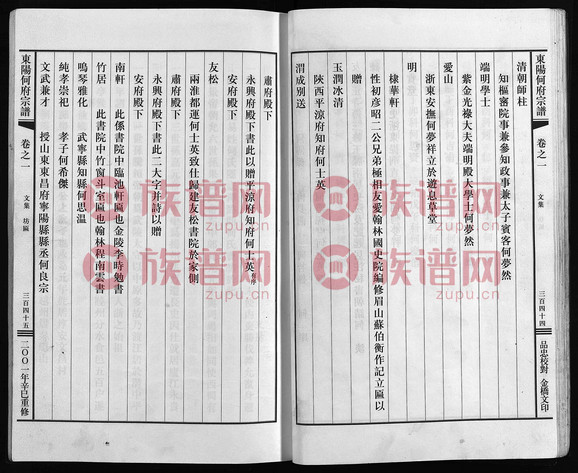 東陽何府宗譜
卷之一
文集
三百四十四
品忠校對
金橋文印
清朝師柱
知樞密院事兼參知政事兼太子賓客何夢然
端明學士
紫金光祿大夫端明殿大學士何夢然
愛山
浙東安撫何夢祥立於遊息草堂
明
棣華軒
性初彥昭二公兄弟極相友愛翰林國史院編修眉山蘇伯衡作記立匾以
贈
玉潤冰清
陝西平涼府知府何士英
渭成別送
肅府殿下
永興府殿下書此以贈平涼府知府何士英有序
安府殿下
友松
兩淮都運何士英致仕歸建友松書院於家側
肅府殿下
永興府殿下書此二大字并詩以贈
安府殿下
南軒 此係書院中臨池軒匾也金陵李時勉書
竹居 此書院中竹窗斗室匾也翰林程南雲書
鳴琴雅化 武寧縣知縣何思溫
純孝崇祀 孝子何希傑
文武兼才 授山東東昌府寧陽縣縣丞何良宗
東陽何府宗譜
卷之一
文集
坊匾
三百四十五
二〇〇一年辛巳重修
族谱网
zupu.cn
族谱网
zupu.cn
族谱网
zupu.cn
族谱网
zupu.cn